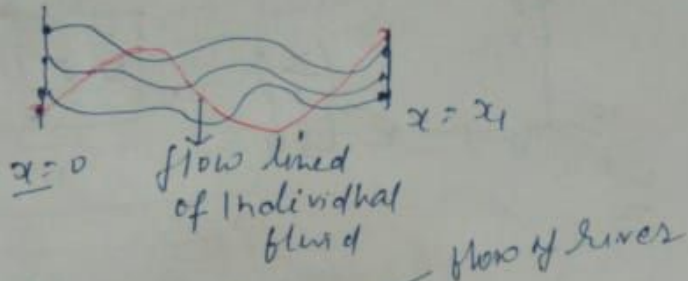 x = x₁
x = 0
flow lined
of Individhal
fluid
flow of river